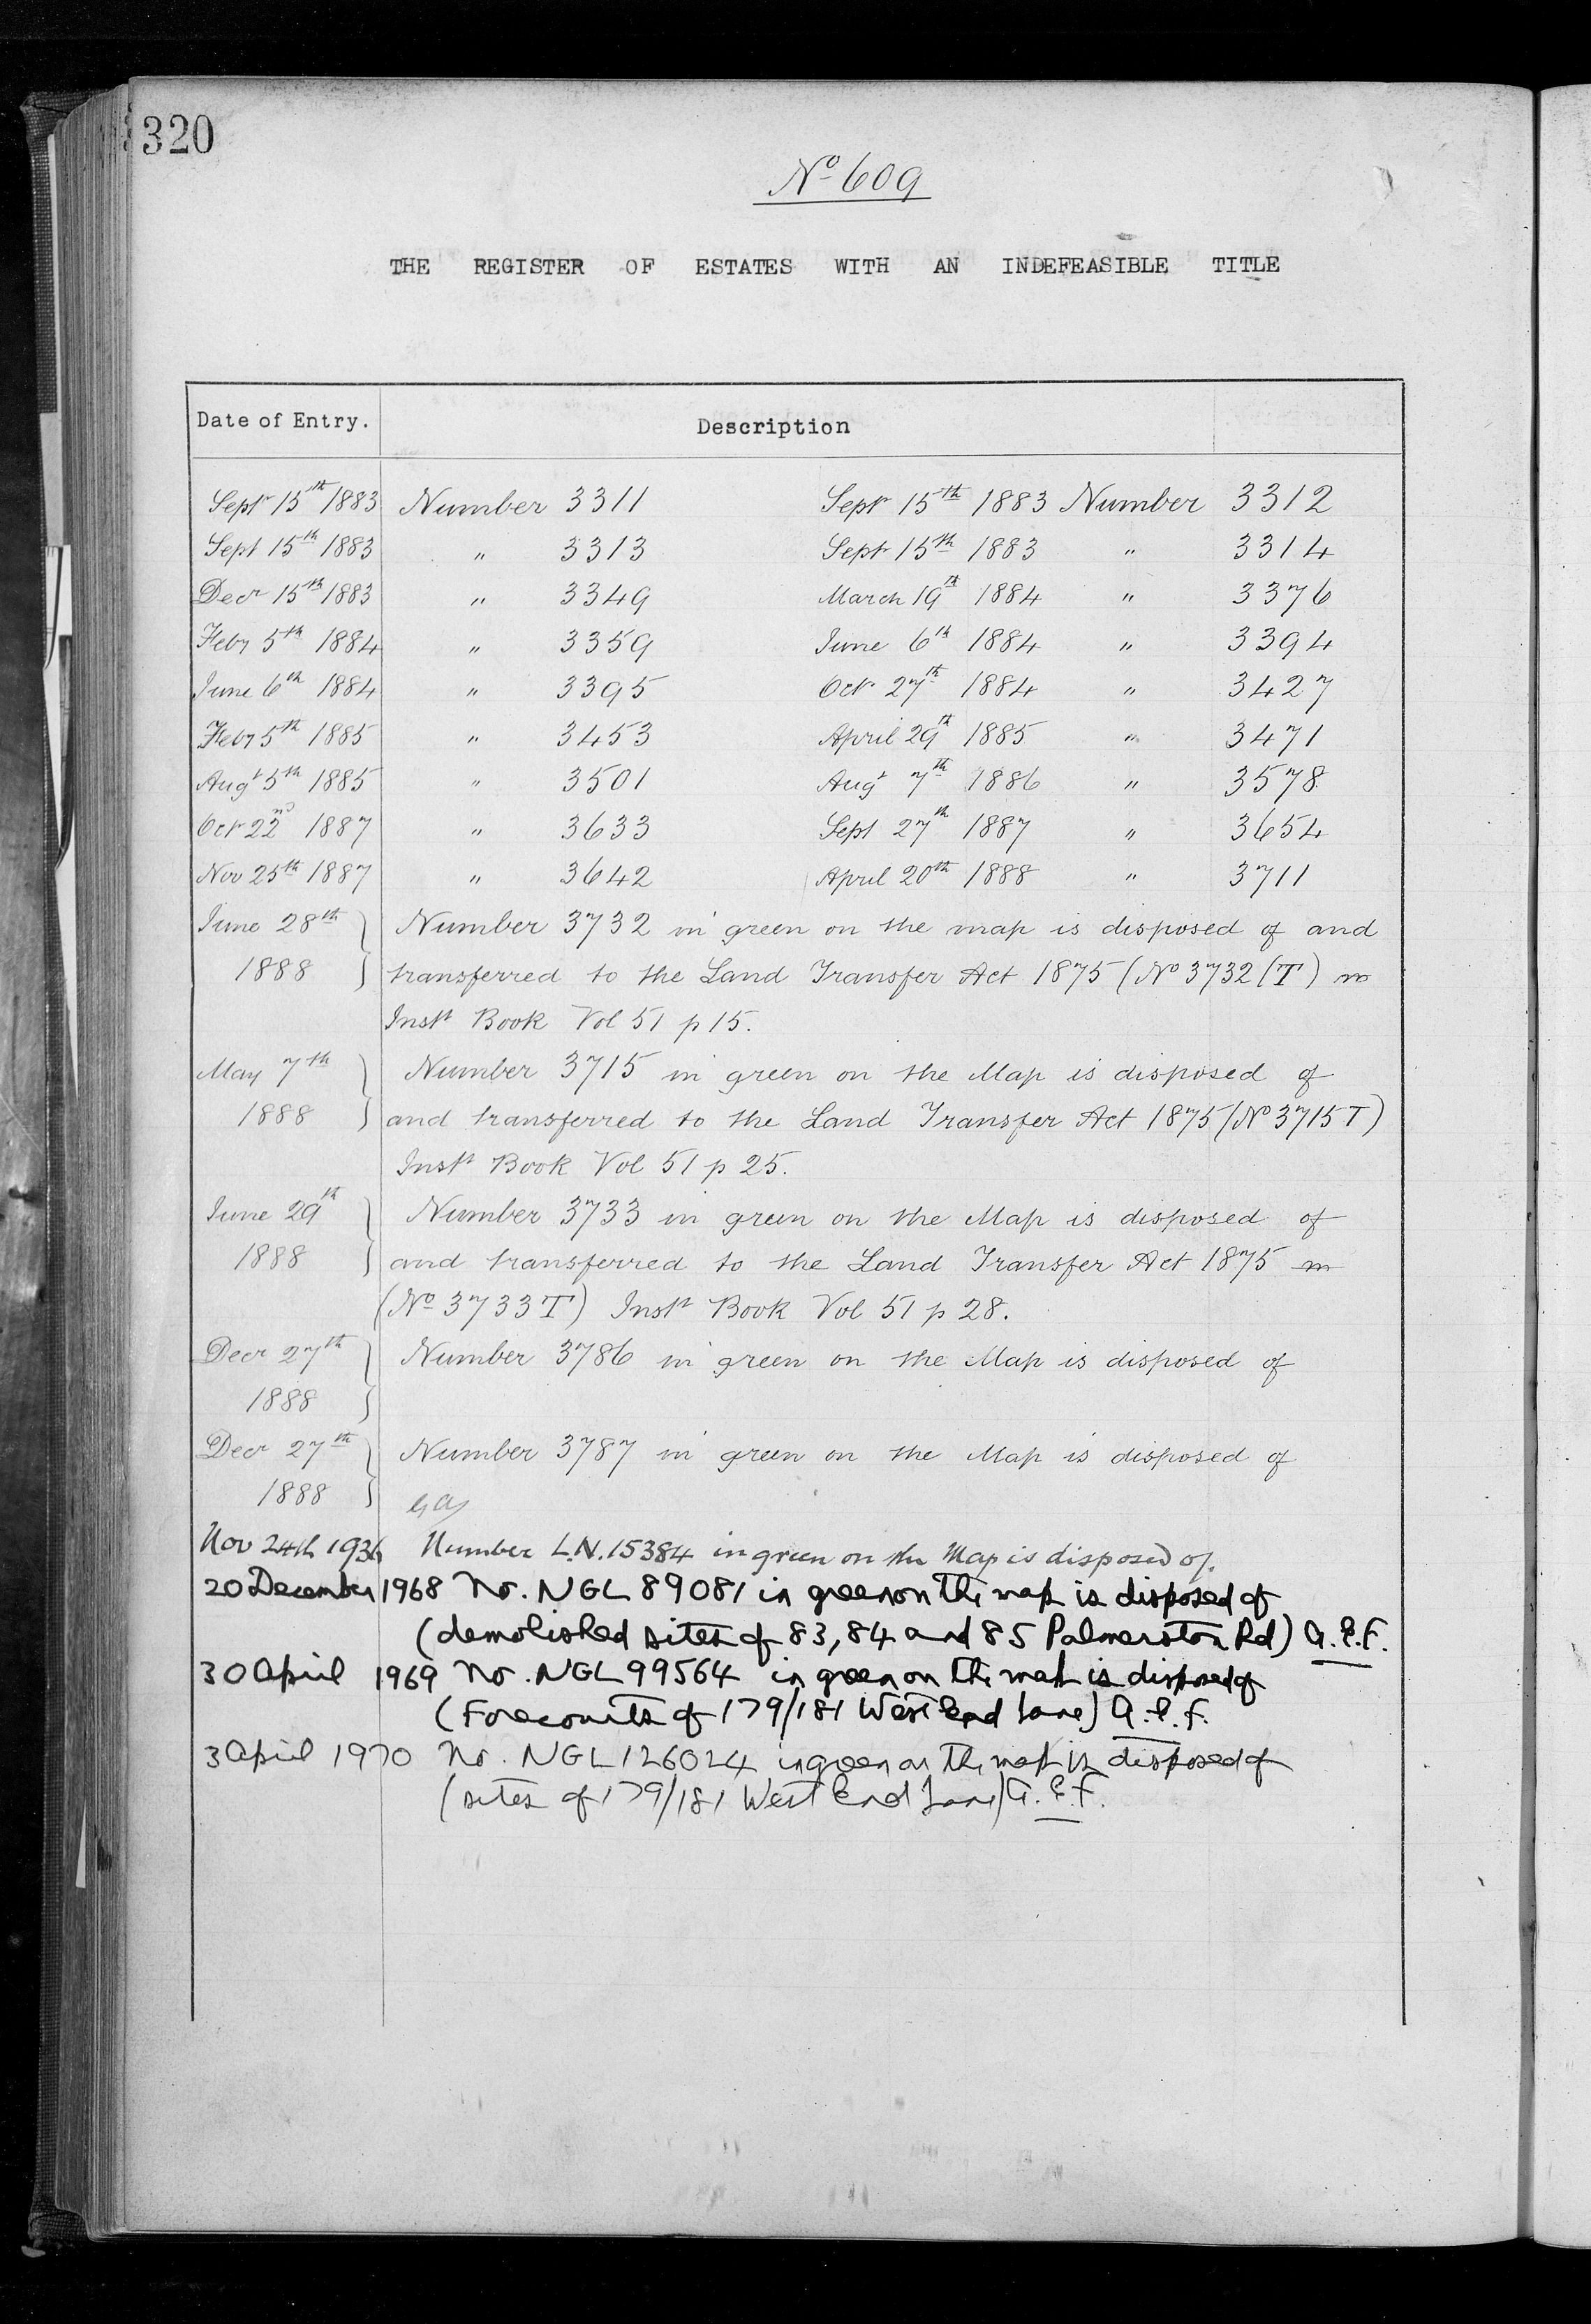 320
No 609
THE REGISTER OF ESTATES WITH AN INDEFEASIBLE TITLE
Date of Entry. Description
Septr 15th 1883 Number 3311 Septr 15th 1883 Number 3312
Sept 15th 1883 " 3313 Septr 15th 1883 " 3314
Decr 15th 1883 " 3349 March 19th 1884 " 3376
Feby 5th 1884 " 3359 June 6th 1884 " 3394
June 6th 1884 " 3395 Octr 27th 1884 " 3427
Feby 5th 1885 " 3453 April 29th 1885 " 3471
Augt 5th 1885 " 3501 Augt 7th 1886 " 3578
Octr 22nd 1887 " 3633 Sept 27th 1887 " 3654
Nov 25th 1887 " 3642 April 20th 1888 " 3711
June 28th Number 3732 in green on the map is disposed of and
1888 transferred to the Land Transfer Act 1875 (No 3732 (T) in
Instt Book Vol 51 p 15.
May 7th Number 3715 in green on the Map is disposed of
1888 and transferred to the Land Transfer Act 1875 (No 3715 T)
Instt Book Vol 51 p 25.
June 29th Number 3733 in green on the Map is disposed of
1888 and transferred to the Land Transfer Act 1875 in
(No 3733 T) Instt Book Vol 51 p 28.
Decr 27th Number 3786 in green on the Map is disposed of
1888
Decr 27th Number 3787 in green on the Map is disposed of
1888
Nov 24th 1936 Number L.N. 15384 in green on the Map is disposed of.
20 December 1968 No. NGL 89081 in green on the map is disposed of
(demolished sites of 83, 84 and 85 Palmerston Rd) A.E.F.
30 April 1969 No. NGL 99564 in green on the map is disposed of
(Forecourts of 179/181 West End Lane) A.E.F.
3 April 1970 No. NGL 126024 in green on the map is disposed of
(sites of 179/181 West End Lane) A.E.F.